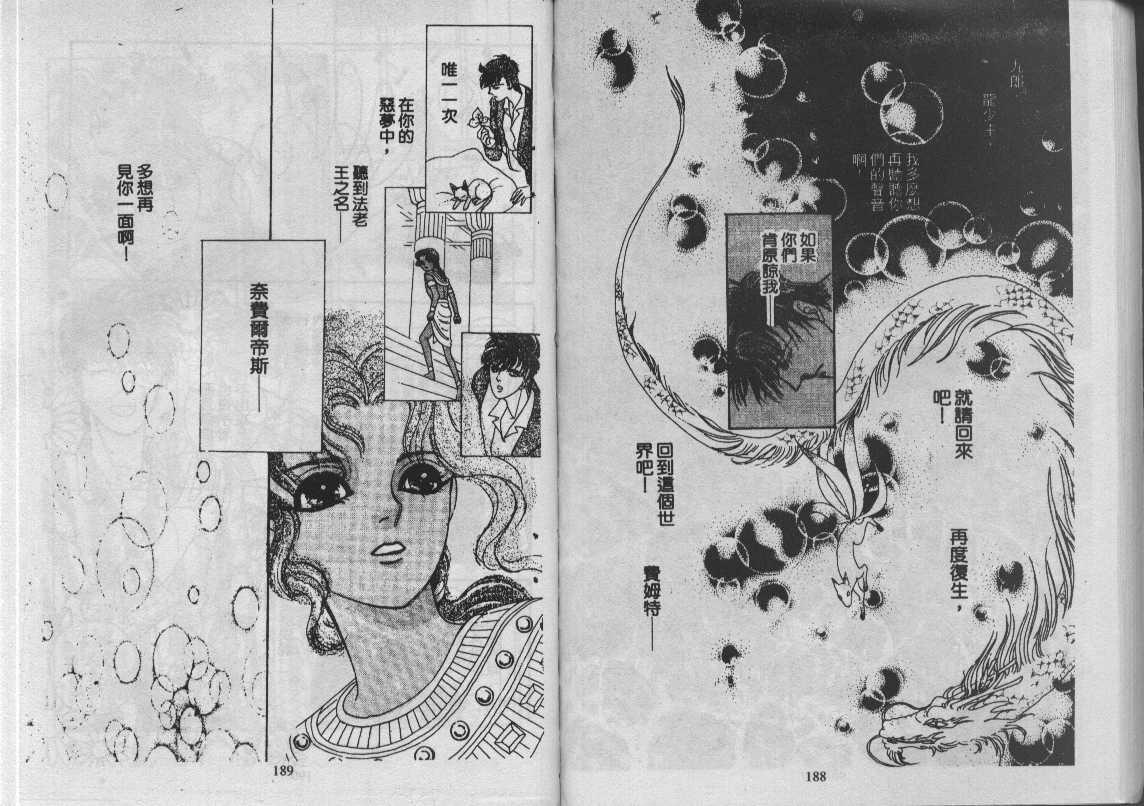 九郎,
龍少主,
我多麼想
再聽聽你
們的聲音
啊!
如果
你們
肯原諒我——
就請回來
吧!
再度復生,
回到這個世
界吧!
費姆特——
188
唯一一次
在你的
惡夢中,
聽到法老
王之名——
奈費爾帝斯——
多想再
見你一面啊!
189